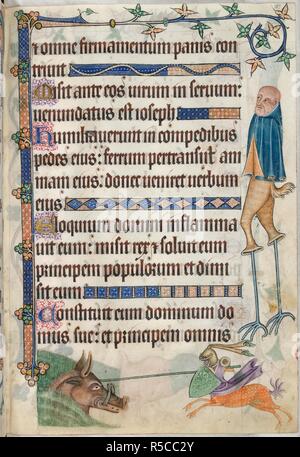 ⁊ omne firmamentum panis con
triuit
Misit ante eos uirum in seruum
uenundatus est ioseph
Humiliauerunt in compedibus
pedes eius: ferrum pertransiit ani
mam eius: donec ueniret uerbum
eius
Eloquium domini inflamma
uit eum: misit rex ⁊ soluit eum
princeps populorum et dimi
sit eum
Constituit eum dominum do
mus sue: et principem omnis
alamy
Image ID: R5CC2Y
www.alamy.com